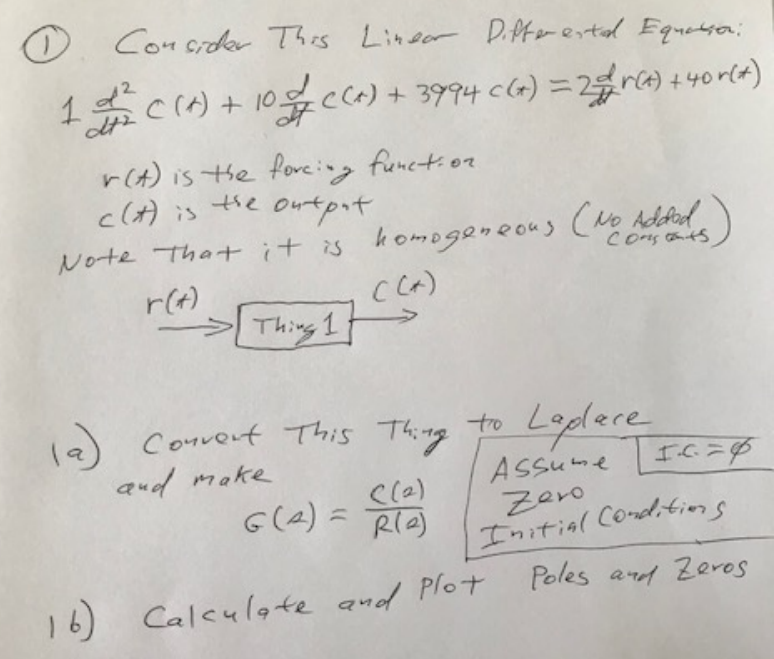 ① Consider This Linear Differential Equation:
1 d²/dt² c(t) + 10 d/dt c(t) + 3994 c(t) = 2 d/dt r(t) + 40 r(t)
r(t) is the forcing function
c(t) is the output
Note That it is homogeneous (No Added Constants)
r(t) Thing 1 c(t)
1a) Convert This Thing to Laplace
and make
G(s) = C(s)/R(s)
Assume I.C. = ∅
Zero
Initial Conditions
1b) Calculate and Plot Poles and Zeros